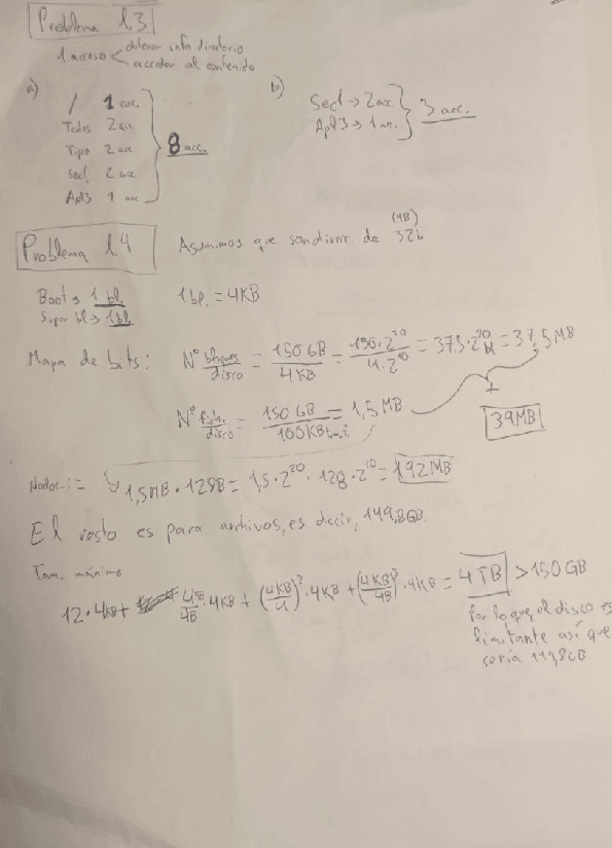 Problema 1.3
1 acceso < obtener info directorio
acceder al contenido
a)
/ 1 acc.
Todos 2 acc
Tipo 2 acc
Sec1 2 acc
Apl3 1 acc
8 acc.
b)
Sec1 → 2 acc
Apl3 → 1 acc.
3 acc.
Problema 1.4 Asumimos que son direcc. de 32b (4B)
Boot → 1 bl. 1 bl. = 4KB
Super bl → 1 bl
Mapa de bits: Nº bloques/disco = 150 GB/4KB = 150·2^30/4·2^10 = 37,5·2^20 = 37,5 MB
Nº fich./disco = 150 GB/100KB = 1,5 MB
+
39MB
Nodos-i = 1,5MB · 128B = 1,5·2^20 · 128·2^10 = 192MB
El resto es para archivos, es decir, 149,8GB.
Tam. máximo
12·4KB + 4KB/4B·4KB + (4KB/4)^2·4KB + (4KB/4B)^3·4KB = 4TB > 150 GB
Por lo que, el disco es
limitante así que
sería 149,8GB